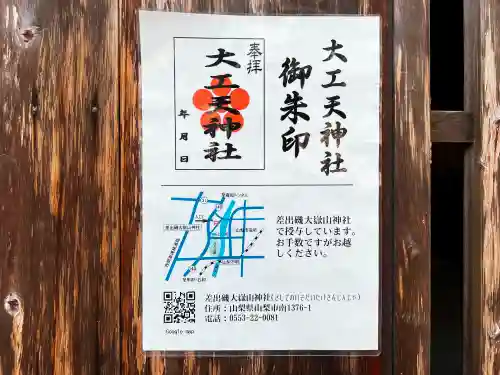 大工天神社
御朱印
奉拝
大工天神社
年月日
差出磯大嶽山神社
で授与しています。
お手数ですがお越
しください。
差出磯大嶽山神社
差出磯大嶽山神社(さしでのいそだいたけさんじんじゃ)
住所：山梨県山梨市南1376-1
電話：0553-22-0081
Google map